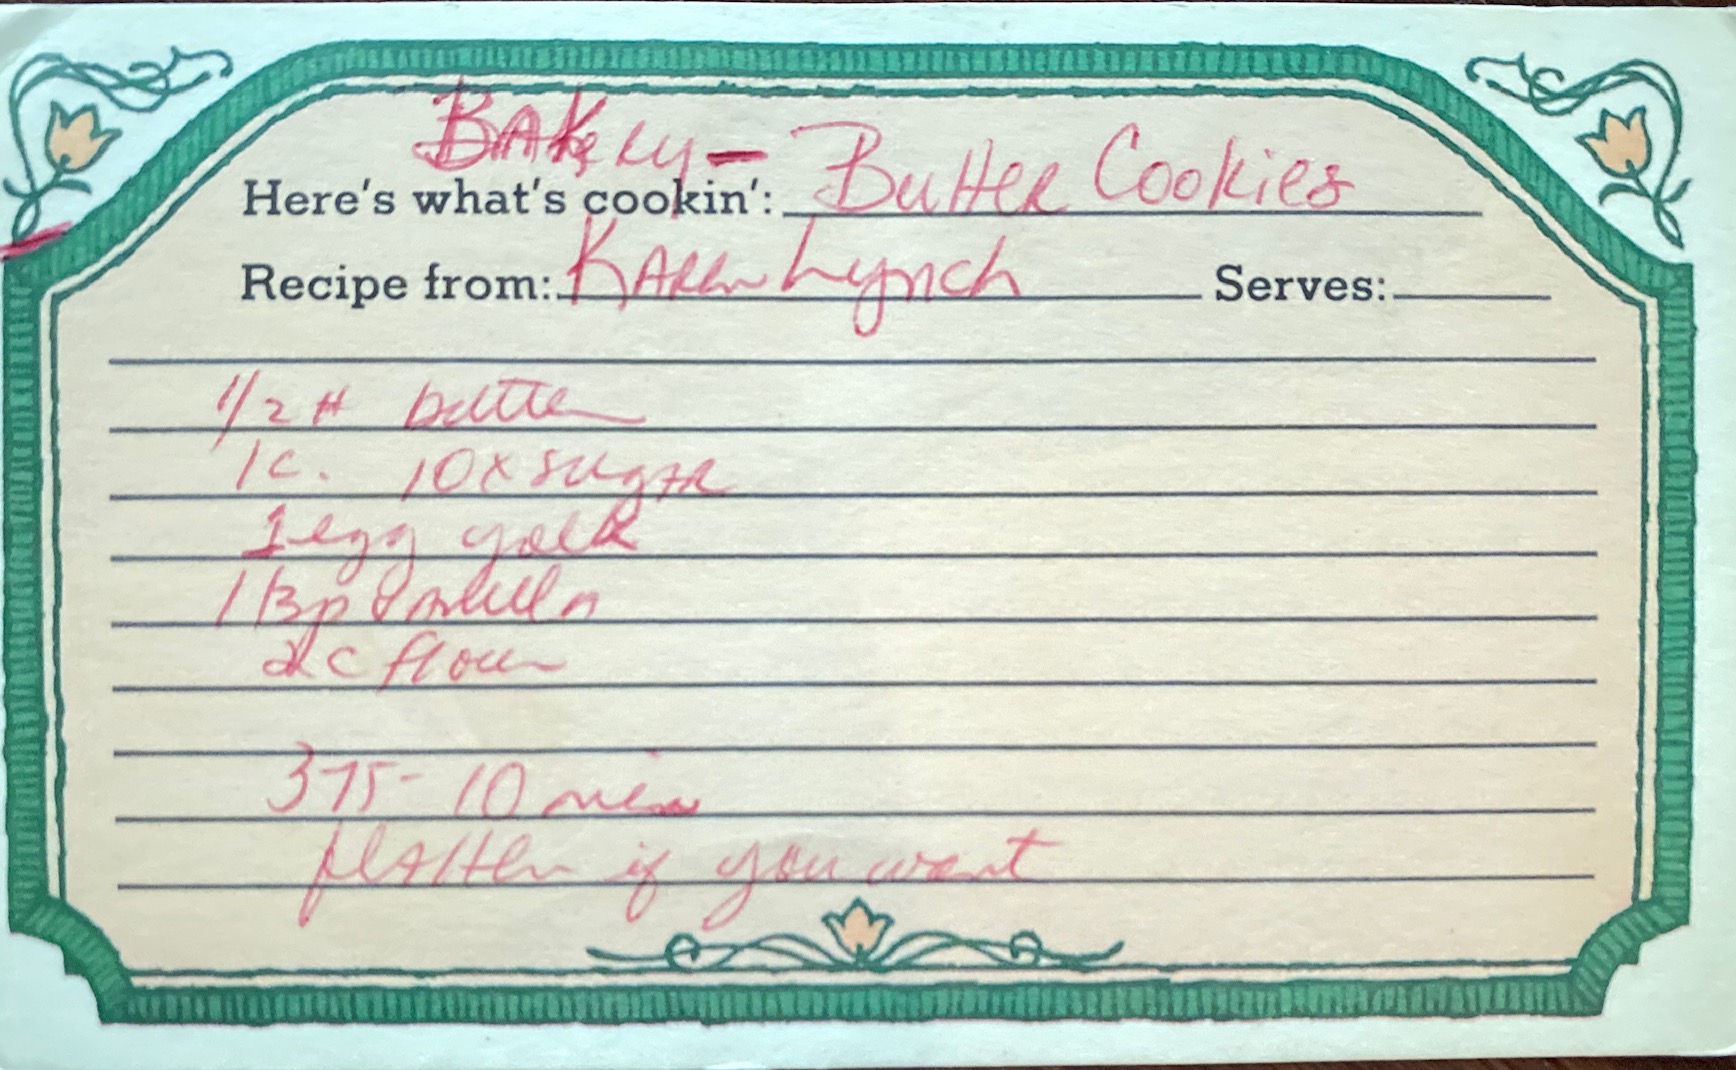 Bakery-
Here's what's cookin': Butter Cookies
Recipe from: Karen Lynch Serves:
1/2 # butter
1c. 10x sugar
1 egg yolk
1 tsp vanilla
2 c flour
375- 10 min
flatten if you want